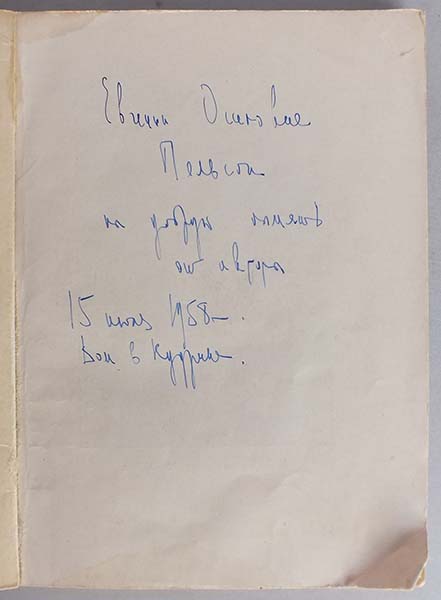 Евгении Осиповне
Пельсон
на добрую память
от автора
15 июля 1958 г.
Дом в Кудрине.